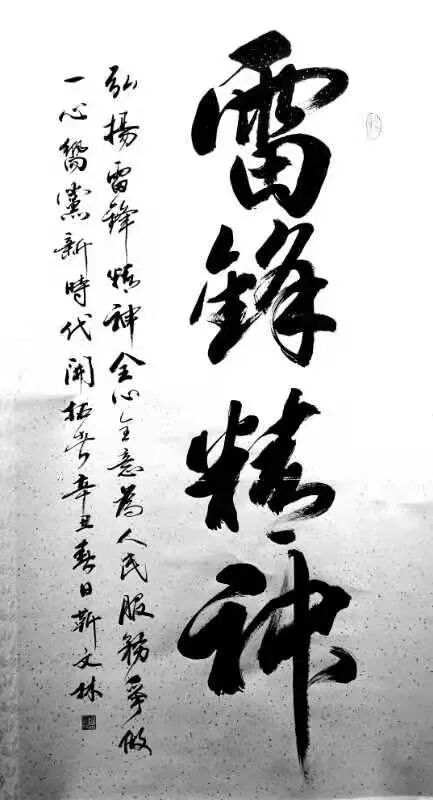 雷鋒精神
弘揚雷鋒精神全心全意為人民服務爭做
一心嚮黨新時代開拓者辛丑春日靳文林